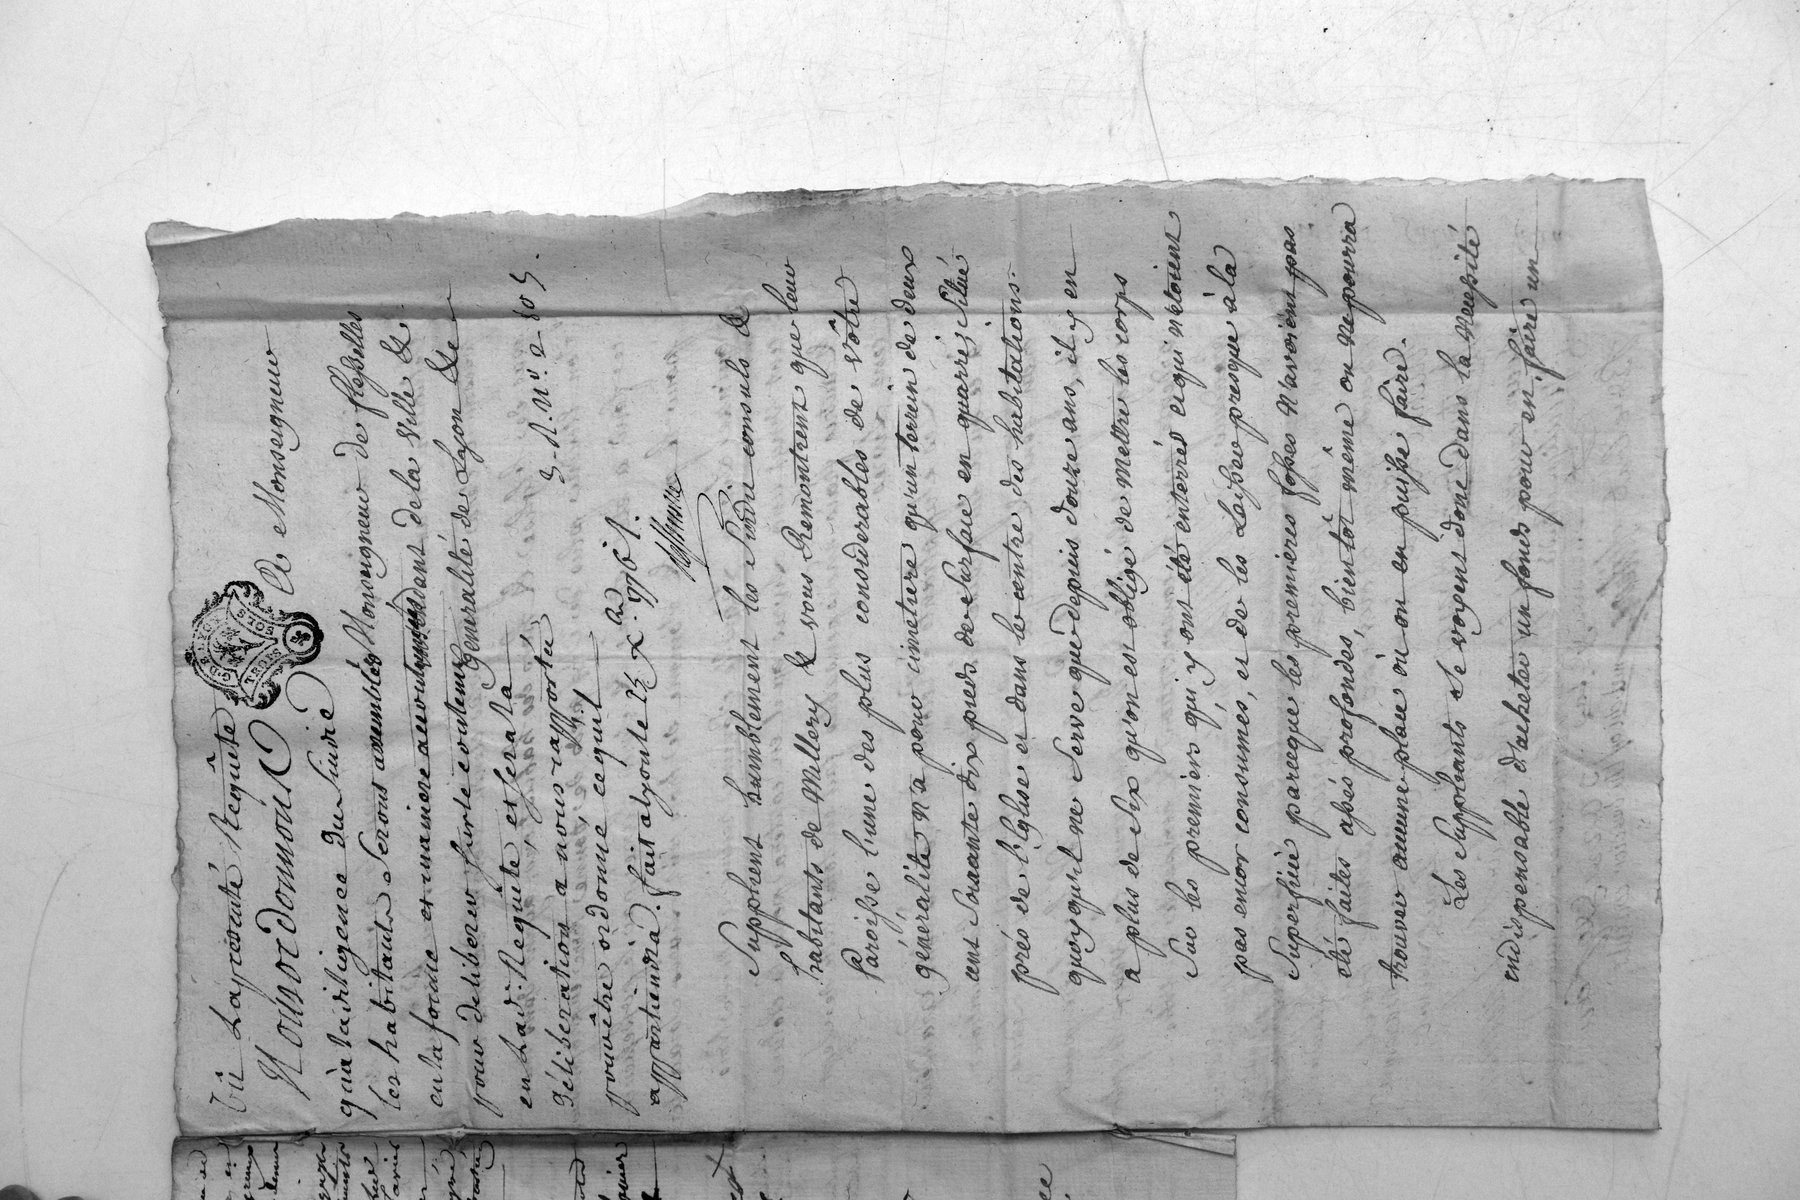 Vû La precedente Requête
A Monseigneur
Nous ordonnons
qu'a la diligence du Sindic
Monseigneur de flesselles
les habitants Seront assemblés
en la forme et maniere accoutumée
Intendant de la Ville &
pour deliberer sur le contenu
Generalité de Lyon &c
en Lad: Requête, et sera la
déliberation a nous rapportée
pour être ordonné ce qu'il
appartiendra. fait a Lyon le
Supplient humblement les Sindic consuls &
habitants de Millery & vous Remontrent que leur
Paroisse l'une des plus considerables de vôtre
généralité n'a pour cimetiere qu'un terrein de deux
cent soixante dix pieds de surface en quarré, Situé
prés de l'Eglise et dans le centre des habitations.
quoyqu'il ne Serve que depuis douze ans, il y en
a plus de Six qu'on est obligé de mettre les corps
Sur les premiers qui y ont été enterrés et qui n'etoient
pas encor consumés, et de les Laisser presque à la
Superficie parceque les premieres fosses n'avoient pas
été faites assés profondes, bientôt même on ne pourra
trouver aucune place où on en puisse faire.
Les Suppliants se voyent donc dans la necessité
indispensable d'acheter un fonds pour en faire un
DE LYON
TROIS
SOLS